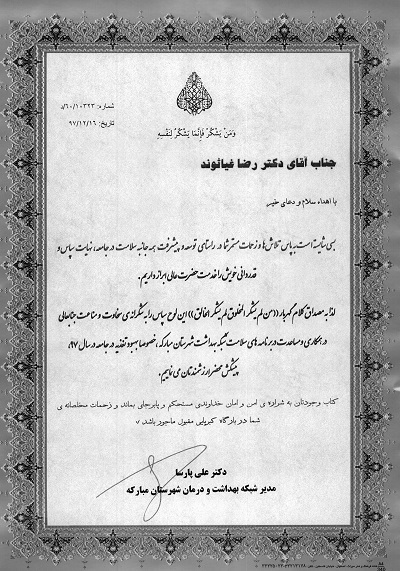 شماره: ۶۰/۱۰۳۲۳/د
تاریخ: ۹۷/۱۲/۱۶
وَمَنْ يَشْكُرْ فَإِنَّمَا يَشْكُرُ لِنَفْسِهِ
جناب آقای دکتر رضا غیاثوند
با اهداء سلام و دعای خیر
بسی شایسته است به پاس تلاش ها و زحمات مستمر شما در راستای توسعه و پیشرفت همه جانبه سلامت در جامعه، نهایت سپاس و
قدردانی خویش را خدمت حضرت عالی ابراز داریم.
لذا به مصداق کلام گهربار ((من لم یشکر المخلوق لم یشکر الخالق)) این لوح سپاس را به شکرانه ی سخاوت و مناعت جنابعالی
در همکاری و مساعدت در برنامه های سلامت شبکه بهداشت شهرستان مبارکه، خصوصا بهبود تغذیه در جامعه در سال ۹۷،
پیشکش محضر ارزشمندتان می نماییم.
کتاب وجودتان به شیرازه ی امن و امان خداوندی مستحکم و پابرجای بماند و زحمات مخلصانه ی
شما در بارگاه کبریایی مقبول ماجور باشد.
دکتر علی پارسا
مدیر شبکه بهداشت و درمان شهرستان مبارکه